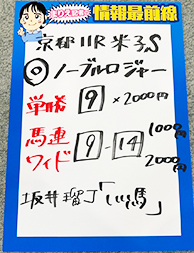 情報最前線
京都11R 米子S
◎ノーブルロジャー
単勝 9 ×2000円
馬連 1000円
ワイド 9-14 2000円
坂井瑠丁「いい馬」